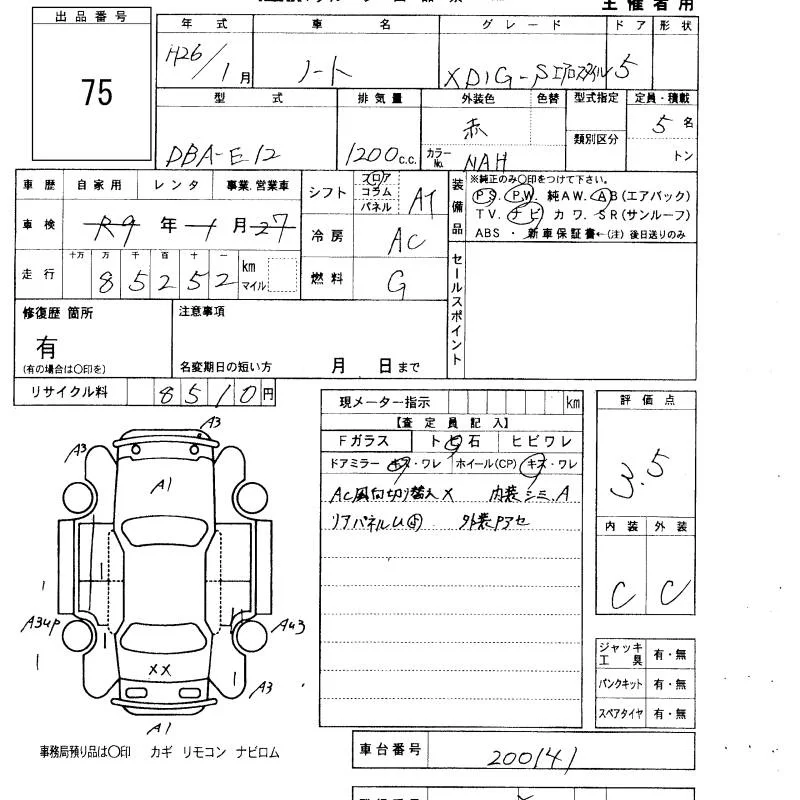 主催者用
出品番号
75
年式 車名 グレード ドア 形状
H26/1月 ノート X DIG-S エアロスタイル 5
型式 排気量 外装色 色替 型式指定 定員・積載
DBA-E12 1200c.c. 赤 類別区分 5名
カラーNo. NAH トン
車歴 自家用 レンタ 事業.営業車
シフト フロア コラム パネル AT
装備品 ※純正のみ〇印をつけて下さい。
PS. PW. 純AW. AB(エアバック)
TV. ナビ カワ. SR(サンルーフ)
ABS ・ 新車保証書←(注)後日送りのみ
車検 R9年1月27
冷房 AC
走行 十万 万 千 百 十 一
85252 km マイル
燃料 G
セールスポイント
修復歴 箇所
有
(有の場合は〇印を)
注意事項
名変期日の短い方 月 日まで
リサイクル料 8510円
現メーター指示 km
評価点
3.5
【査定員記入】
Fガラス トビ石 ヒビワレ
ドアミラー キズ・ワレ ホイール(CP) キズ・ワレ
AC風向切り替え× 内装シミ.A
リアパネルU 外装Pアセ
内装 外装
C C
A3 A3
A1
A3up AU3
XX
A3
A1
ジャッキ 工具 有・無
パンクキット 有・無
スペアタイヤ 有・無
事務局預り品は〇印 カギ リモコン ナビロム
車台番号 200141